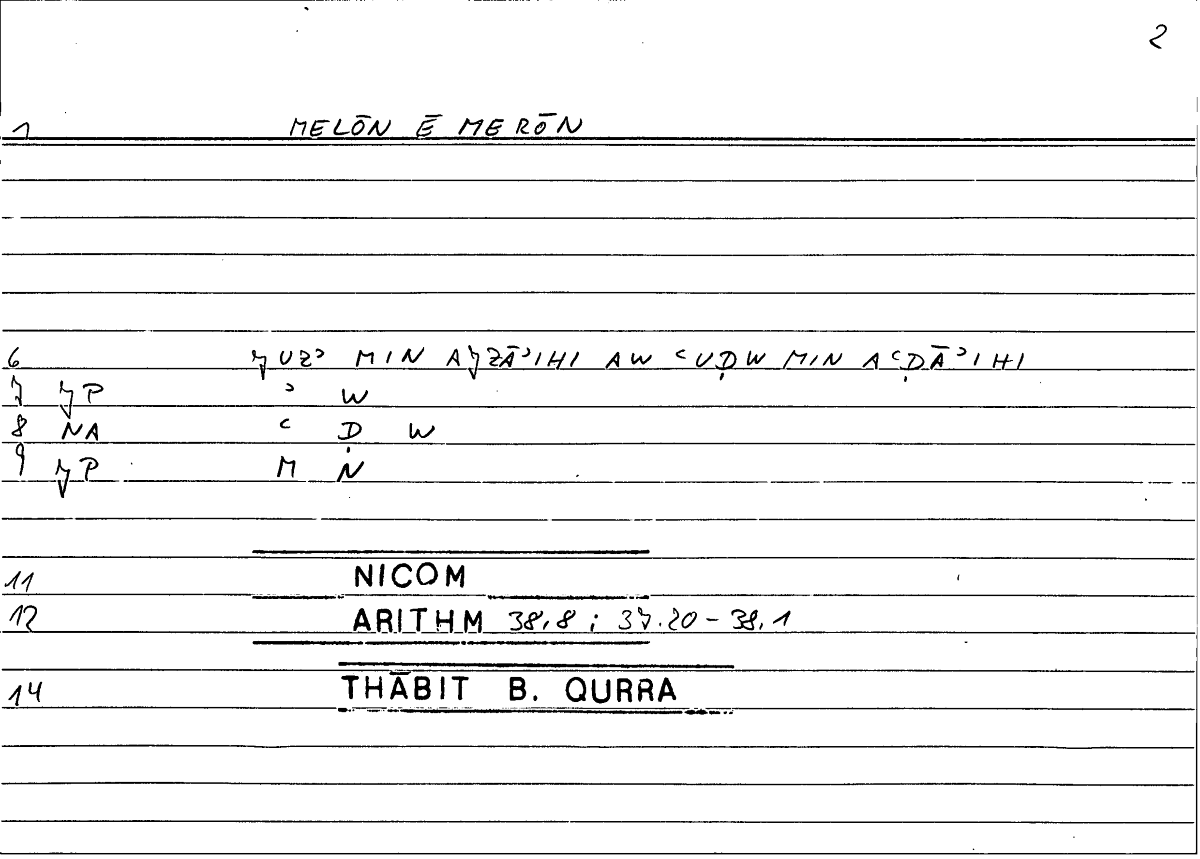 2
1 MELŌN Ē MERŌN
6 ǦUZʾ MIN AǦZĀʾIHI AW ʿUḌW MIN AʿḌĀʾIHI
7 ǦP ʾ W
8 NA ʿ Ḍ W
9 ǦP M N
11 NICOM
12 ARITHM 38,8 ; 37.20 - 38,1
14 THĀBIT B. QURRA